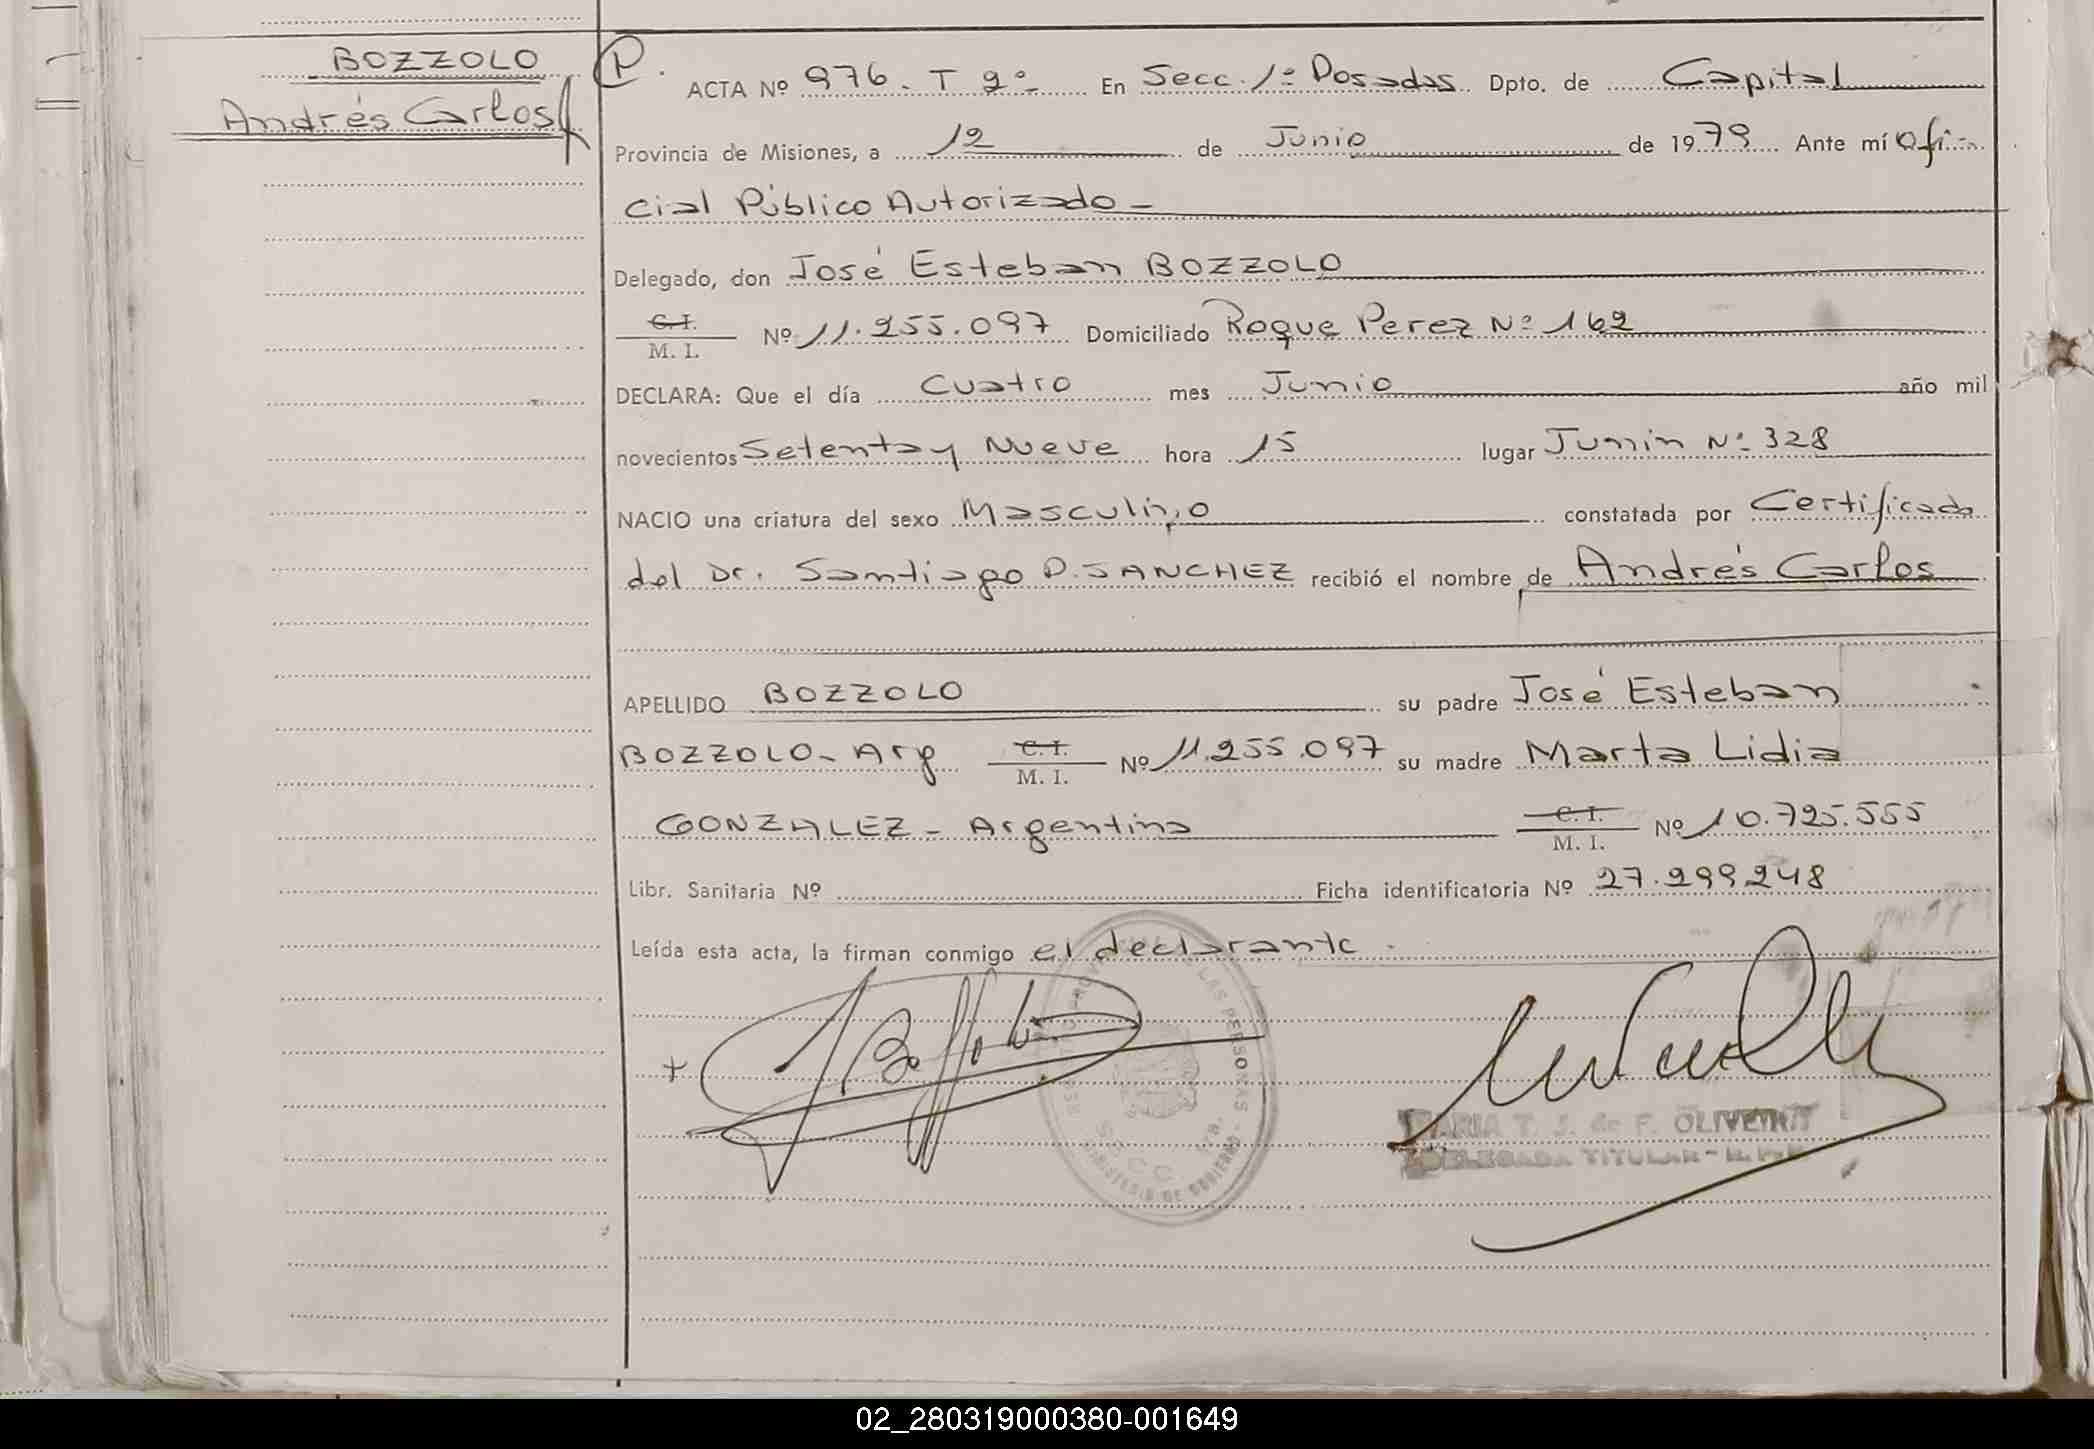 BOZZOLO
Andrés Carlos
P.
ACTA Nº 976. T 2º. En Secc. 1º Posadas Dpto. de Capital
Provincia de Misiones, a 12 de Junio de 1979. Ante mí Ofi-
cial Público Autorizado -
Delegado, don José Esteban BOZZOLO
C.I. M. I. Nº 11.255.097 Domiciliado Roque Perez Nº 162
DECLARA: Que el día Cuatro mes Junio año mil
novecientos Setenta y Nueve hora 15 lugar Junin Nº 328
NACIO una criatura del sexo Masculino constatada por Certificado
del Dr. Santiago D. SANCHEZ recibió el nombre de Andrés Carlos
APELLIDO BOZZOLO su padre José Esteban
BOZZOLO - Arg C.I. M. I. Nº 11.255.097 su madre Marta Lidia
GONZALEZ - Argentina C.I. M. I. Nº 10.725.555
Libr. Sanitaria Nº Ficha identificatoria Nº 27.299248
Leída esta acta, la firman conmigo el declarante.
LAS PERSONAS
SECC. 1ra.
MINISTERIO DE GOBIERNO
MARIA T. J. de F. OLIVEIRA
DELEGADA TITULAR -
02_280319000380-001649